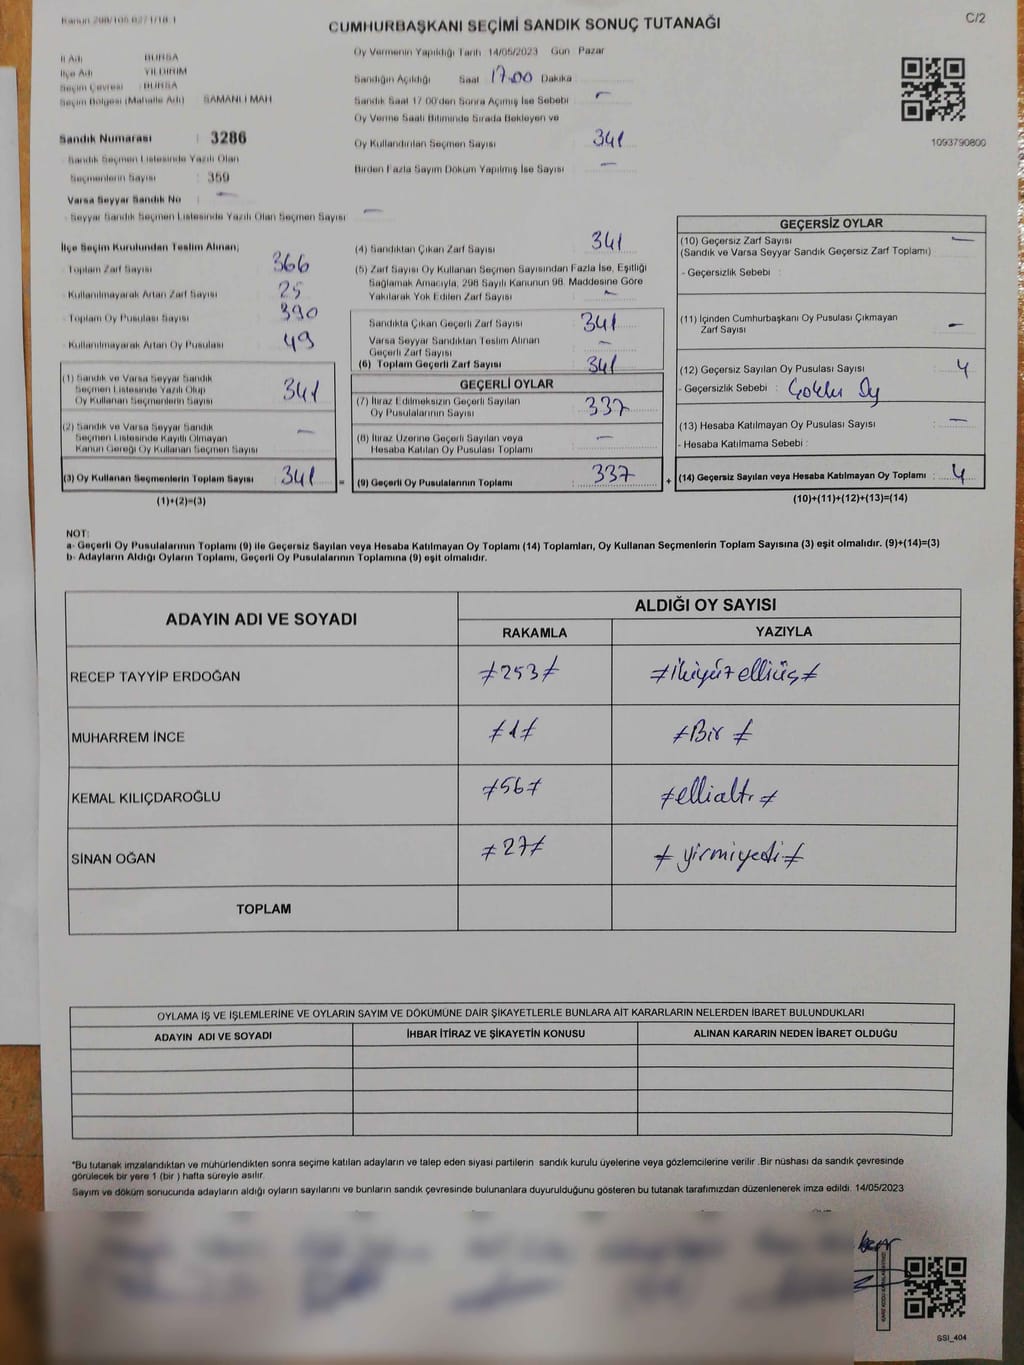 CUMHURBAŞKANI SEÇİMİ SANDIK SONUÇ TUTANAĞI
C/2
İl Adı : BURSA
İlçe Adı : YILDIRIM
Seçim Çevresi : BURSA
Seçim Bölgesi (Mahalle Adı) : SAMANLI MAH
Sandık Numarası : 3286
Sandık Seçmen Listesinde Yazılı Olan
Seçmenlerin Sayısı : 359
Varsa Seyyar Sandık No : —
Seyyar Sandık Seçmen Listesinde Yazılı Olan Seçmen Sayısı —
Oy Vermenin Yapıldığı Tarih 14/05/2023 Gün Pazar
Sandığın Açıldığı Saat 17.00 Dakika
Sandık Saat 17 00'den Sonra Açımış İse Sebebi —
Oy Verme Saati Bitiminde Sırada Bekleyen ve
Oy Kullandırılan Seçmen Sayısı 341
Birden Fazla Sayım Döküm Yapılmış İse Sayısı —
1093790800
İlçe Seçim Kurulundan Teslim Alınan;
Toplam Zarf Sayısı 366
Kullanılmayarak Artan Zarf Sayısı 25
Toplam Oy Pusulası Sayısı 390
Kullanılmayarak Artan Oy Pusulası 49
(1) Sandık ve Varsa Seyyar Sandık
Seçmen Listesinde Yazılı Olup
Oy Kullanan Seçmenlerin Sayısı 341
(2) Sandık ve Varsa Seyyar Sandık
Seçmen Listesinde Kayıtlı Olmayan
Kanun Gereği Oy Kullanan Seçmen Sayısı —
(3) Oy Kullanan Seçmenlerin Toplam Sayısı 341 =
(1)+(2)=(3)
(4) Sandıktan Çıkan Zarf Sayısı 341
(5) Zarf Sayısı Oy Kullanan Seçmen Sayısından Fazla İse, Eşitliği
Sağlamak Amacıyla, 298 Sayılı Kanunun 98. Maddesine Göre
Yakılarak Yok Edilen Zarf Sayısı —
Sandıkta Çıkan Geçerli Zarf Sayısı 341
Varsa Seyyar Sandıktan Teslim Alınan
Geçerli Zarf Sayısı —
(6) Toplam Geçerli Zarf Sayısı 341
GEÇERLİ OYLAR
(7) İtiraz Edilmeksizin Geçerli Sayılan
Oy Pusulalarının Sayısı 337
(8) İtiraz Üzerine Geçerli Sayılan veya
Hesaba Katılan Oy Pusulası Toplamı —
(9) Geçerli Oy Pusulalarının Toplamı : 337 +
GEÇERSİZ OYLAR
(10) Geçersiz Zarf Sayısı —
(Sandık ve Varsa Seyyar Sandık Geçersiz Zarf Toplamı)
- Geçersizlik Sebebi :
(11) İçinden Cumhurbaşkanı Oy Pusulası Çıkmayan
Zarf Sayısı —
(12) Geçersiz Sayılan Oy Pusulası Sayısı 4
- Geçersizlik Sebebi : Çoklu Oy
(13) Hesaba Katılmayan Oy Pusulası Sayısı : —
- Hesaba Katılmama Sebebi :
(14) Geçersiz Sayılan veya Hesaba Katılmayan Oy Toplamı : 4
(10)+(11)+(12)+(13)=(14)
NOT:
a- Geçerli Oy Pusulalarının Toplamı (9) ile Geçersiz Sayılan veya Hesaba Katılmayan Oy Toplamı (14) Toplamları, Oy Kullanan Seçmenlerin Toplam Sayısına (3) eşit olmalıdır. (9)+(14)=(3)
b- Adayların Aldığı Oyların Toplamı, Geçerli Oy Pusulalarının Toplamına (9) eşit olmalıdır.
ADAYIN ADI VE SOYADI
ALDIĞI OY SAYISI
RAKAMLA YAZIYLA
RECEP TAYYİP ERDOĞAN ≠253≠ ≠ikiyüzelliüç≠
MUHARREM İNCE ≠1≠ ≠Bir≠
KEMAL KILIÇDAROĞLU ≠56≠ ≠ellialtı≠
SİNAN OĞAN ≠27≠ ≠yirmiyedi≠
TOPLAM
OYLAMA İŞ VE İŞLEMLERİNE VE OYLARIN SAYIM VE DÖKÜMÜNE DAİR ŞİKAYETLERLE BUNLARA AİT KARARLARIN NELERDEN İBARET BULUNDUKLARI
ADAYIN ADI VE SOYADI İHBAR İTİRAZ VE ŞİKAYETİN KONUSU ALINAN KARARIN NEDEN İBARET OLDUĞU
*Bu tutanak imzalandıktan ve mühürlendikten sonra seçime katılan adayların ve talep eden siyasi partilerin sandık kurulu üyelerine veya gözlemcilerine verilir .Bir nüshası da sandık çevresinde
görülecek bir yere 1 (bir ) hafta süreyle asılır.
Sayım ve döküm sonucunda adayların aldığı oyların sayılarını ve bunların sandık çevresinde bulunanlara duyurulduğunu gösteren bu tutanak tarafımızdan düzenlenerek imza edildi. 14/05/2023
SSI_404